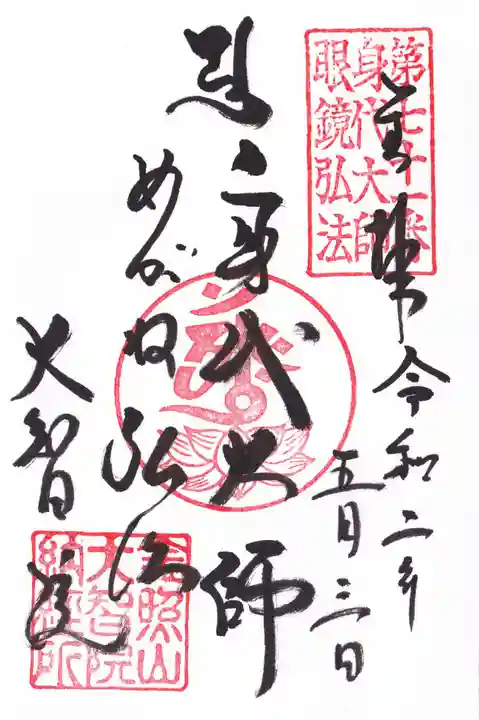 第七十一番
身代大師
眼鏡弘法
奉拝 令和二年
五月三日
身代大師
めがね弘法
大智院
金照山
大智院
納経所